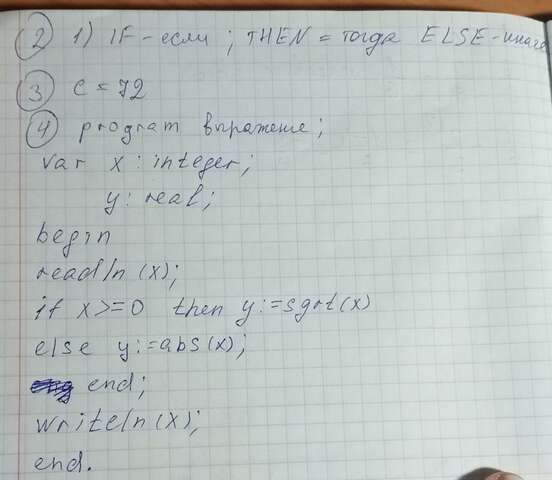 2 1) IF - если ; THEN = тогда ELSE - иначе
3 c = 72
4 program выражение;
var x : integer;
y : real;
begin
readln (x);
if x >= 0 then y := sgrt(x)
else y := abs(x);
end;
writeln (x);
end.